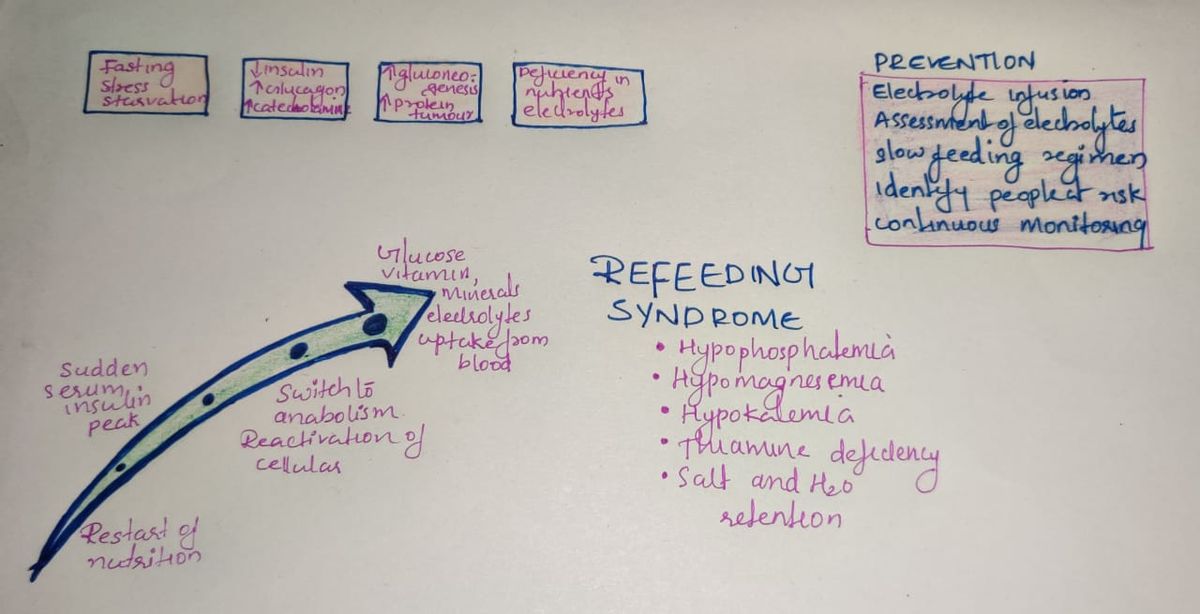 Fasting
stress
starvation
↓insulin
↑Glycagon
↑catecholamine
↑gluconeo-
genesis
↑protein
tumour
Deficiency in
nutrients
electrolytes
PREVENTION
Electrolyte infusion
Assessment of electrolytes
slow feeding regimen
Identify people at risk
continuous monitoring
Glucose
vitamin,
Minerals
electrolytes
uptake from
blood
Sudden
serum,
insulin
peak
Switch to
anabolism.
Reactivation of
cellular
Restart of
nutrition
REFEEDING
SYNDROME
• Hypophosphatemia
• Hypomagnesemia
• Hypokalemia
• Thiamine deficiency
• Salt and H2O
retention